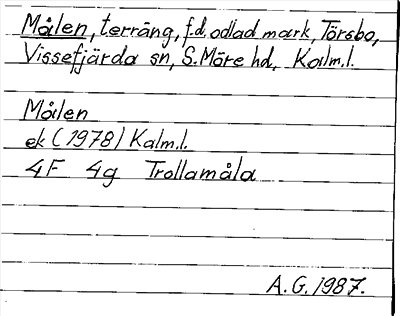 Målen, terräng, f.d. odlad mark, Törsbo,
Vissefjärda sn, S. Möre hd, Kalm.l.
Målen
ek (1978) Kalm.l.
4F 4g Trollamåla
A.G. 1987.